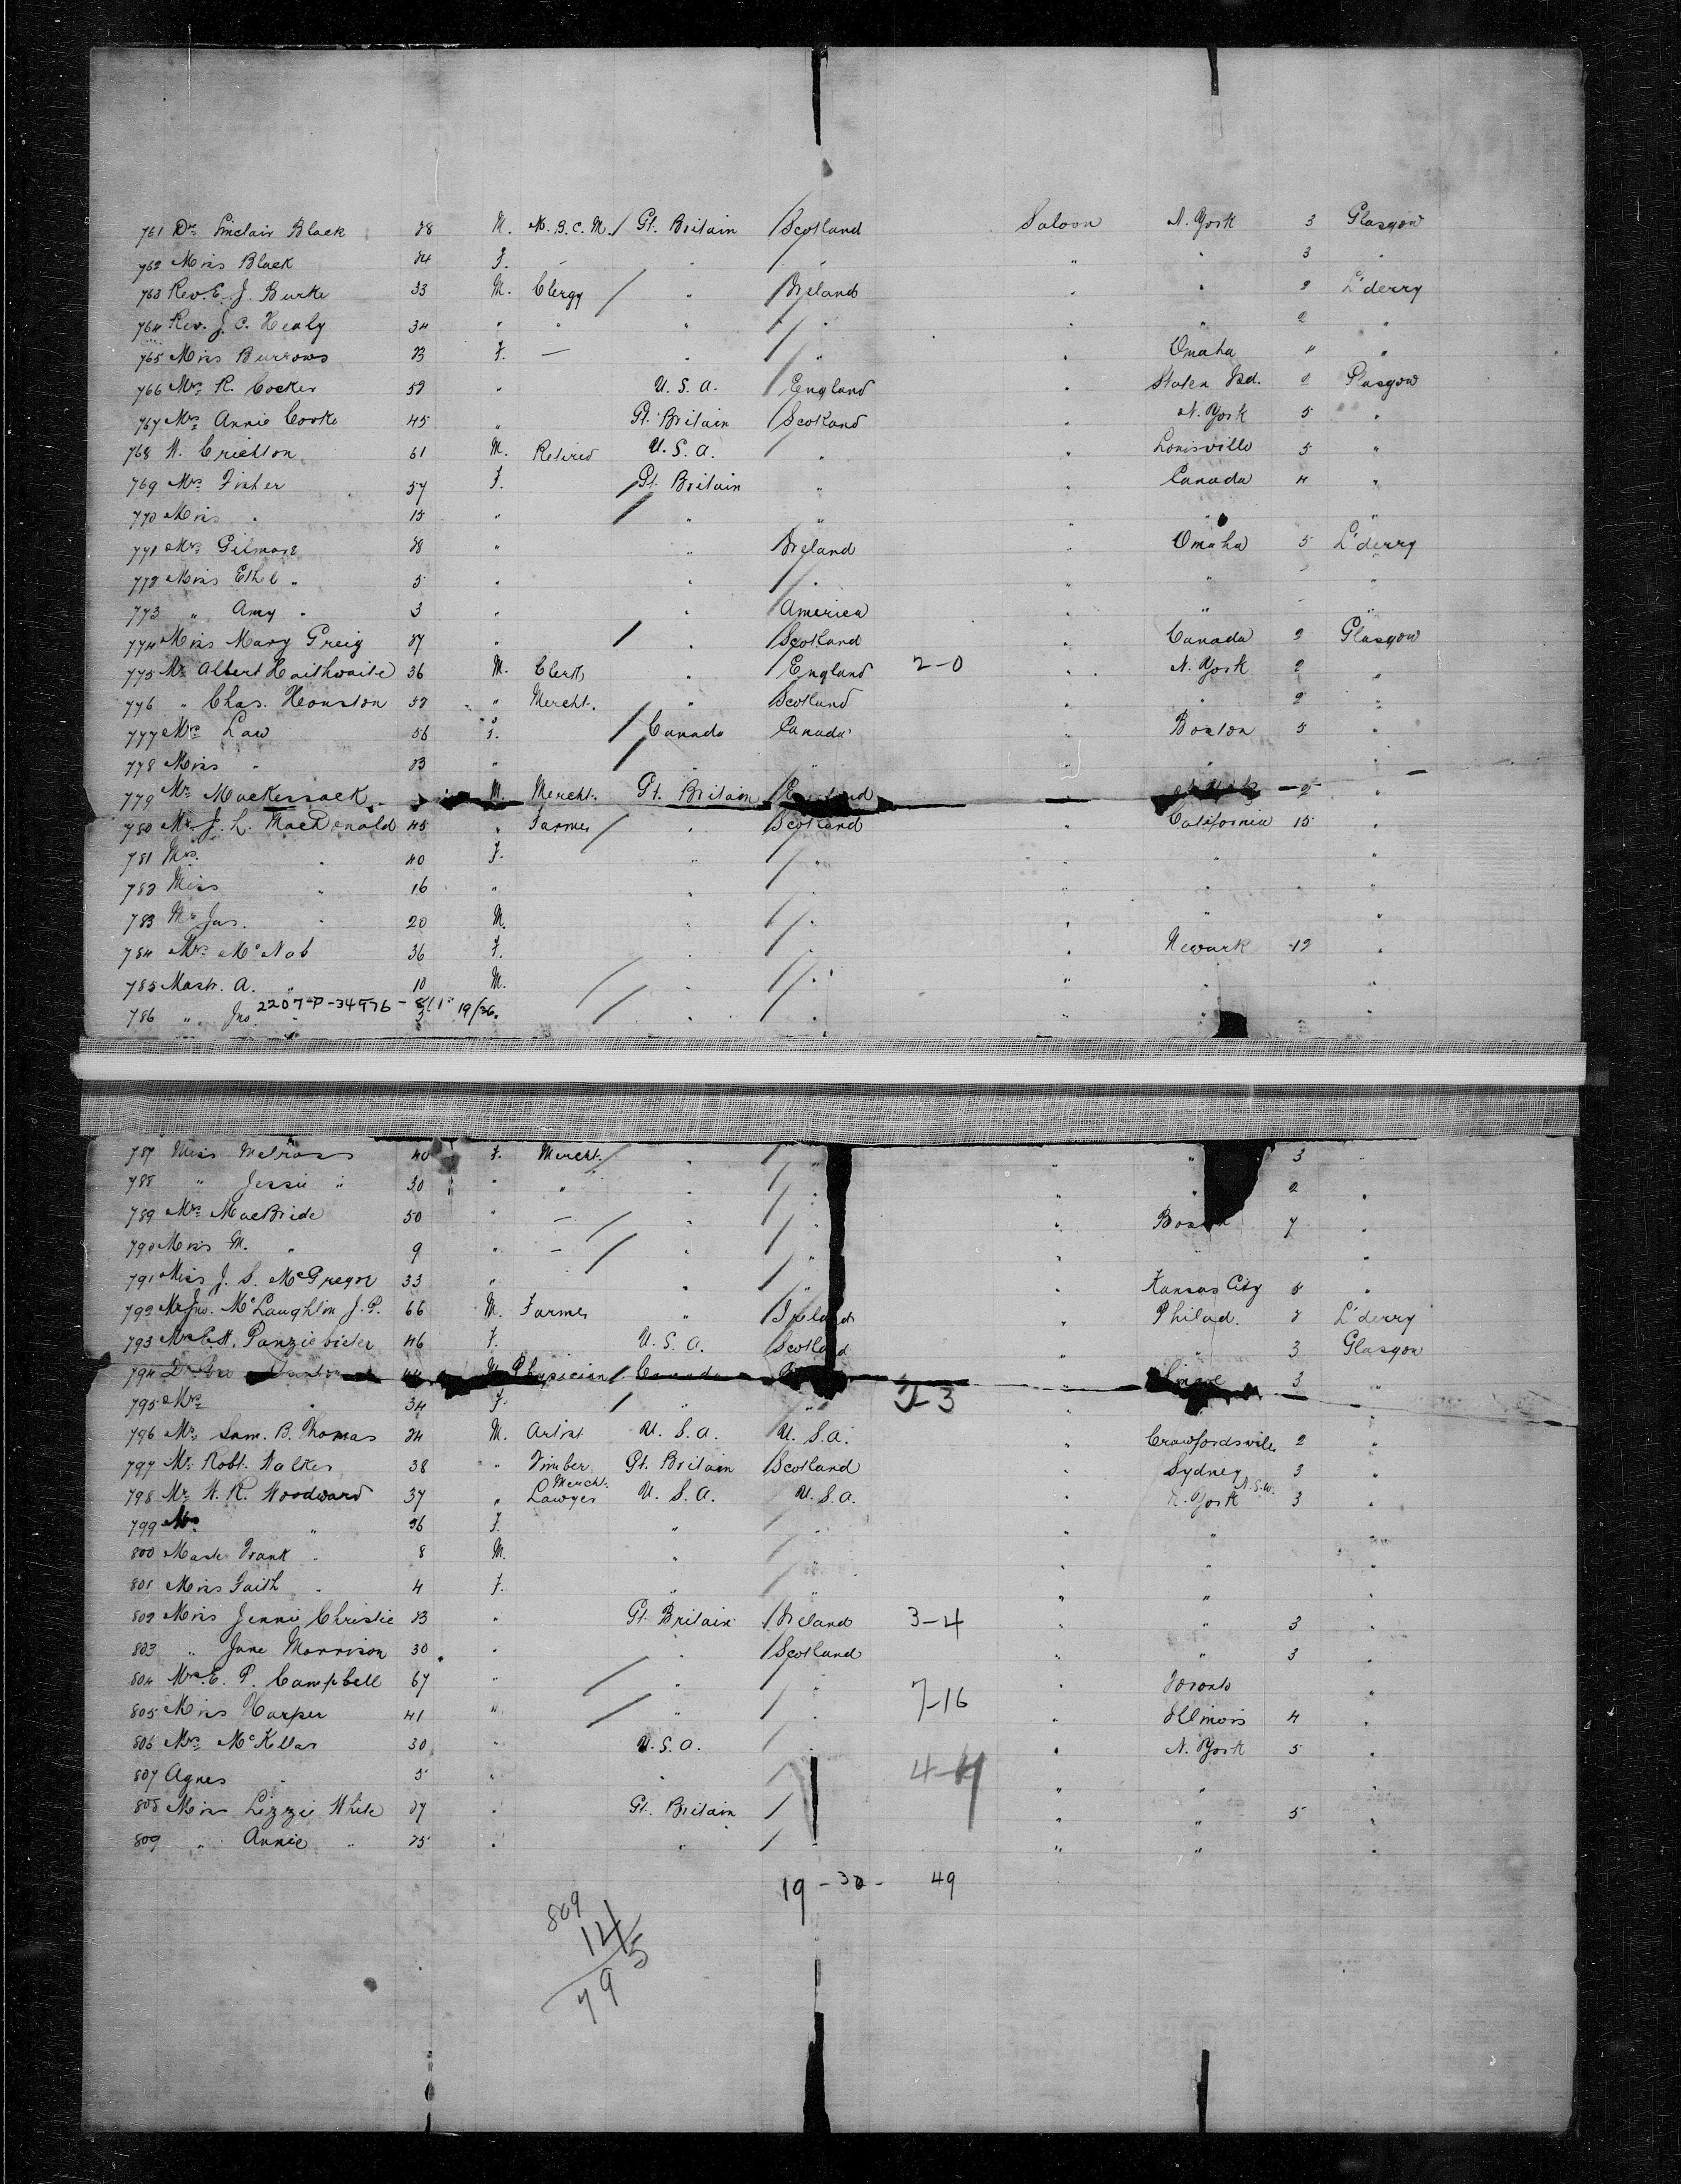 761 Dr. Sinclair Black 28 M. M.B.C.M. / Gt. Britain / Scotland Saloon N. York 3 Glasgow
762 Miss Black 24 F. - " / " " " 3 "
763 Rev. E. J. Burke 33 M. Clergy / " / Ireland " " 2 L'derry
764 Rev. J. C. Healy 34 " " " / " " " 2 "
765 Miss Burrows 23 F. — " / " " Omaha " "
766 Mrs. R. Cocker 52 " U.S.A. / England " Staten Isd. 2 Glasgow
767 Mrs. Annie Cooke 45 " Gt. Britain / Scotland " N. York 5 "
768 W. Crichton 61 M. Retired U.S.A. / " " Louisville 5 "
769 Mrs. Fisher 57 F. / Gt. Britain " " Canada 4 "
770 Miss " 15 " / " " " " "
771 Mrs. Gilmore 28 " " / Ireland " Omaha 5 L'derry
772 Miss Ethel " 5 " " / " " " - "
773 " Amy " 3 " " / America " " - "
774 Miss Mary Greig 27 " / " / Scotland " Canada 2 Glasgow
775 Mr. Albert Haithwaite 36 M. Clerk " / England 2-0 " N. York 2 "
776 " Chas. Houston 52 " Mercht. " / Scotland " " 2 "
777 Mrs. Law 56 F. / Canada Canada " Boston 5 "
778 Miss " 23 " / " " " " "
779 Mr. Mackersack M. Mercht. Gt. Britain / 2 "
780 Mr. J. L. MacDonald 45 " Farmer / " / Scotland " California 15 "
781 Mrs. " 40 F. " / " " " "
782 Miss " 16 " " / " " " "
783 Mr. Jas. " 20 M. " / " " " "
784 Mrs. McNab 36 F. " / " " Newark 12 "
785 Mastr. A. " 10 M. / " / " " " "
786 " Jno. 2207-P-34776 - 3 19/26. / " / " " " "
787 Miss Melross 40 F. Mercht. / " / " " " 3 "
788 " Jessie " 30 " " " / " " " 2 "
789 Mrs. MacBride 50 " — / " / " " Boston 7 "
790 Miss M. " 9 " — / " / " " " "
791 Miss J. S. McGregor 33 " " / " " Kansas City 5 "
792 Mr. Jno. McLaughlin J.P. 66 M. Farmer " / Ireland " Philad. 2 L'derry
793 46 F. U.S.A. / Scotland " " 3 Glasgow
794 Dr. M. Physician / Canada " 3 "
795 Mrs. " 34 F. / " " 2-3 " "
796 Mr. Sam. B. Thomas 24 M. Artist U.S.A. U.S.A. " Crawfordsville 2 "
797 Mr. Robt. Walker 38 " Timber Mercht. Gt. Britain / Scotland " Sydney N.S.W. 3 "
798 Mr. W. R. Woodward 37 " Lawyer U.S.A. U.S.A. " N. York 3 "
799 Mrs. " 36 F. " / " " " "
800 Master Frank " 8 M. " / " " " "
801 Miss Faith " 4 F. " / " " " "
802 Miss Jennie Christie 23 " Gt. Britain / Ireland 3-4 " " 3 "
803 " Jane Morrison 30 " " / Scotland " " 3 "
804 Mrs. E. P. Campbell 67 " / " / " " Toronto "
805 Miss Harper 41 " / " / " 7-16 " Illinois 4 "
806 Mrs. McKellar 30 " U.S.A. / " " N. York 5 "
807 Agnes " 5 " " / 4-4 " " "
808 Miss Lizzie White 27 " Gt. Britain / " " 5 "
809 " Annie " 25 " " / " " " "
19 - 30 - 49
809
14
795